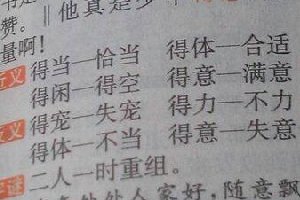 赞。‖他真是少
量啊!
近义 得当—恰当 得体—合适
得闲—得空 得意—满意
反义 得宠—失宠 得力—不力
得体—不当 得意—失意
字谜 二人一时重组。
处处人家好,随意飘